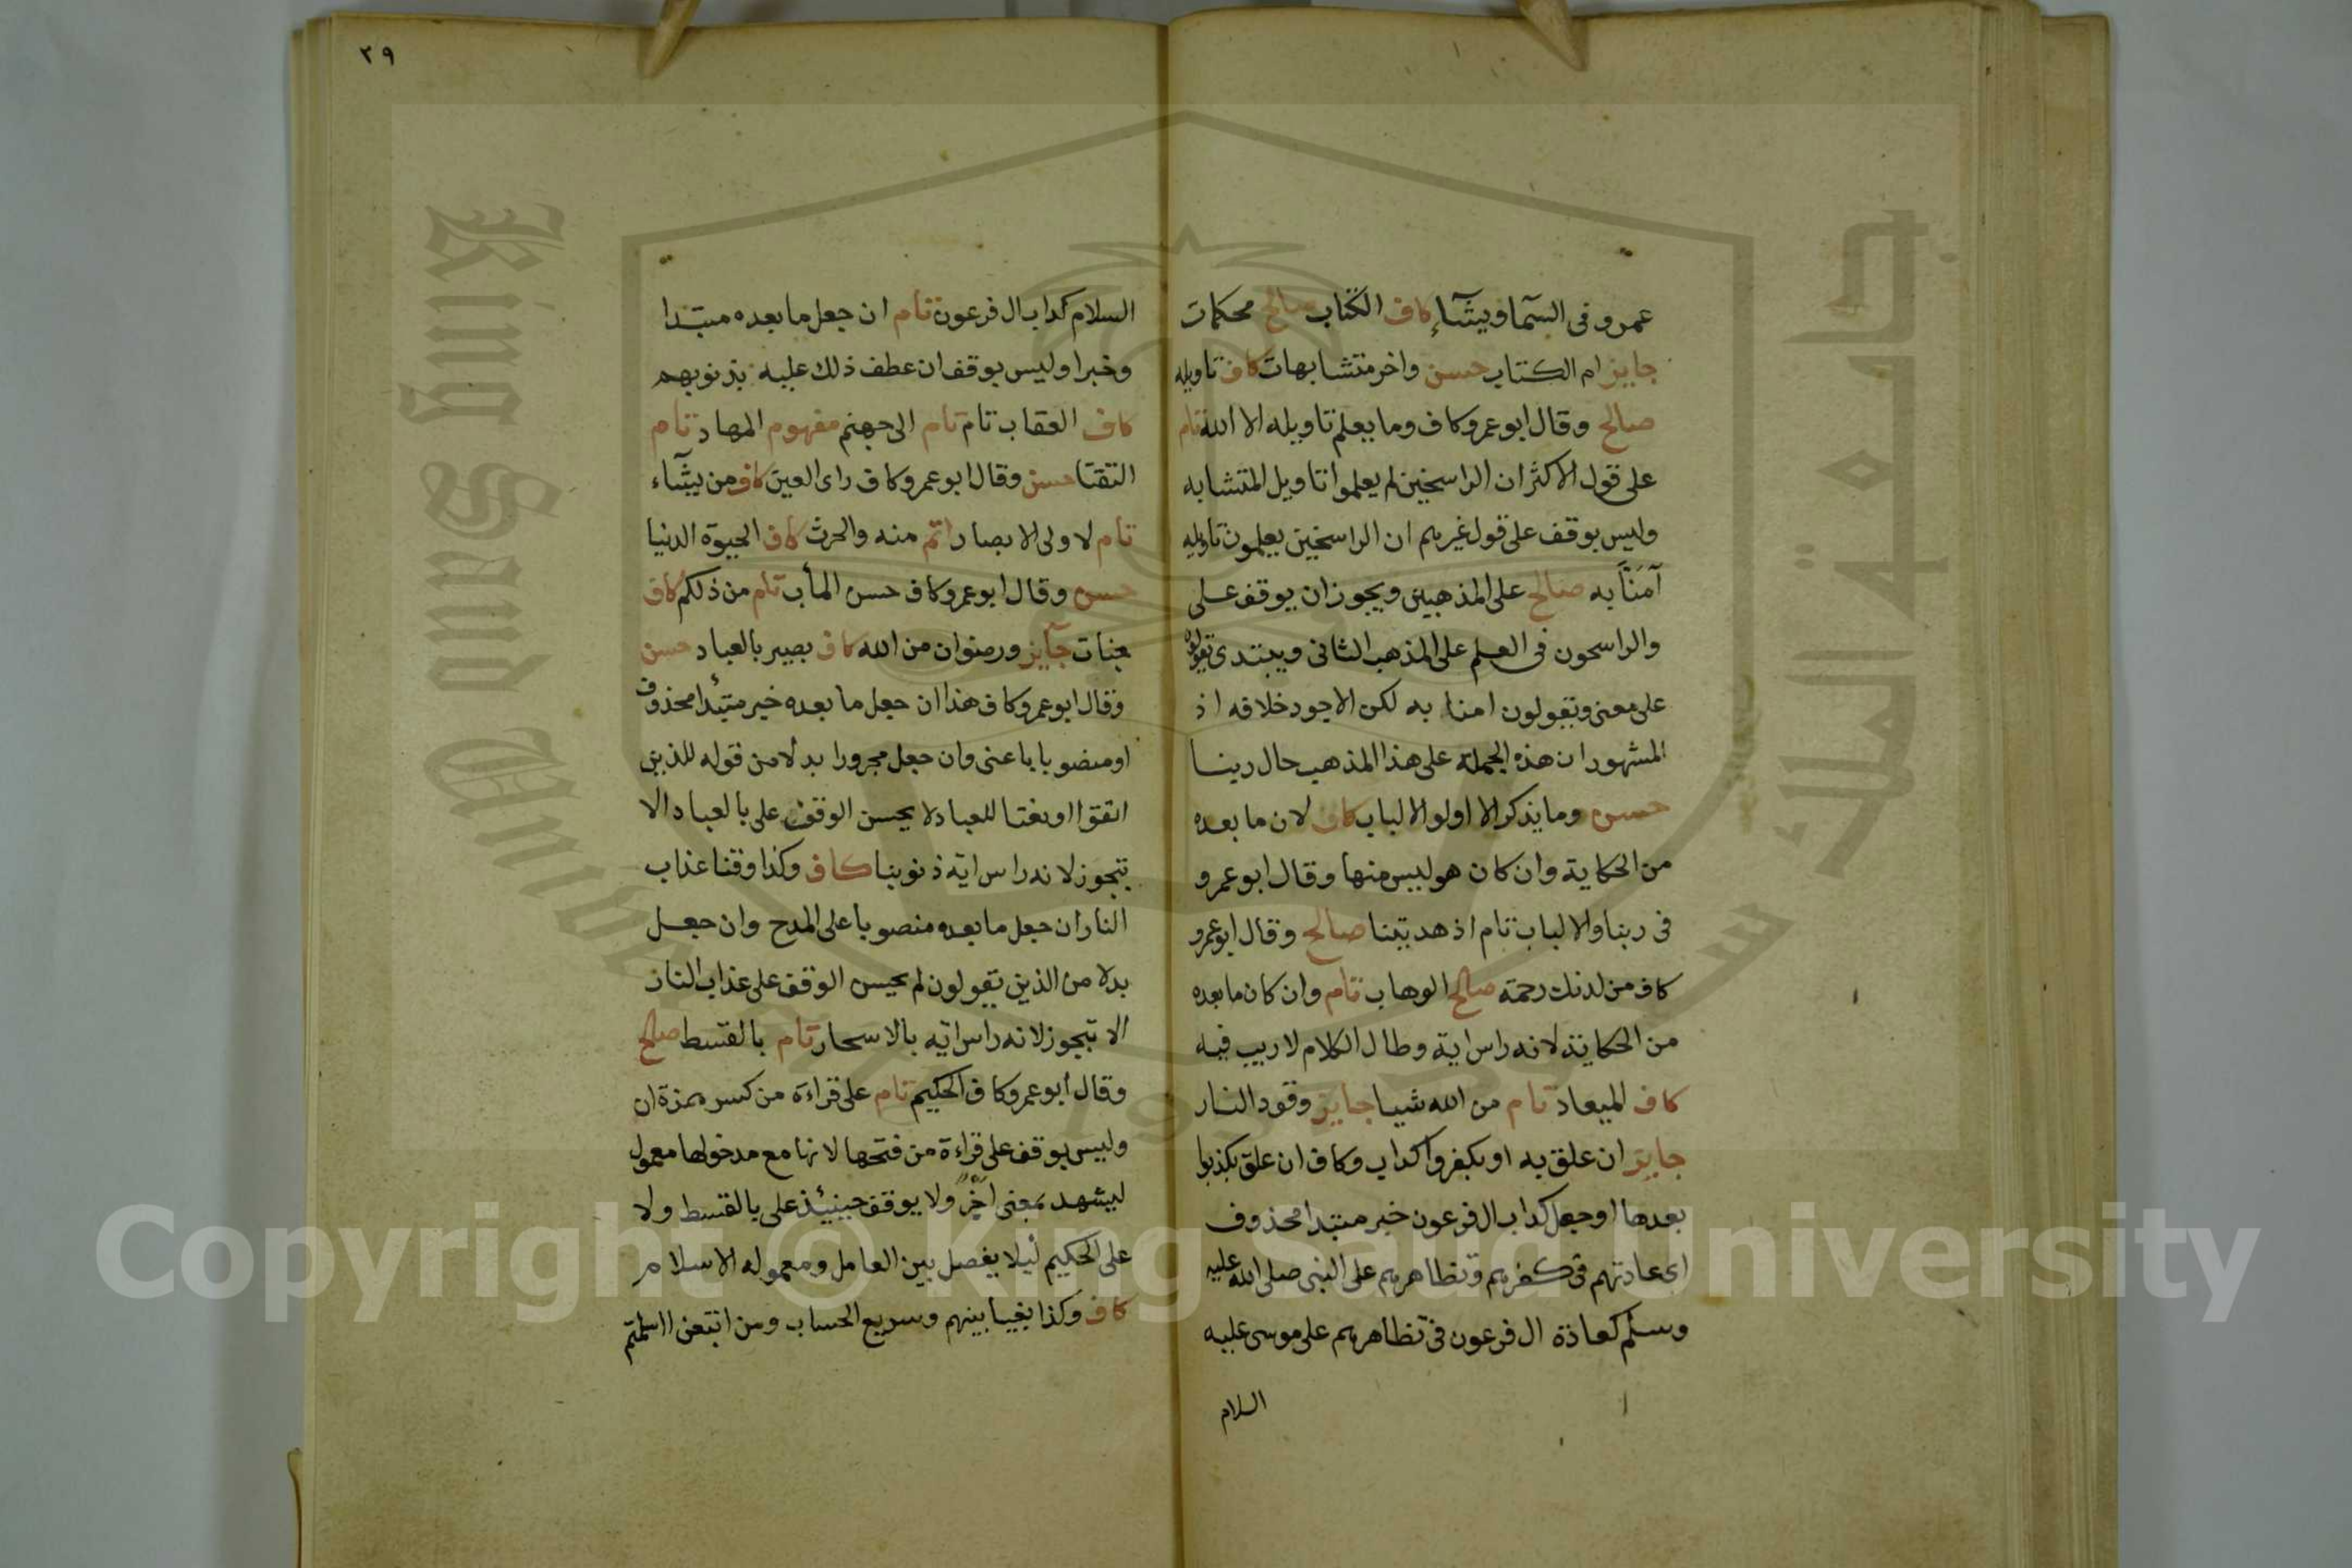 عمرو فى السمآ ويشآء كاف الكتاب صالح محكمات
جايز ام الكتاب حسن واخر متشابهات كاف تاويله
صالح وقال ابو عمرو كاف وما يعلم تاويله الا الله تام
على قول الاكثر ان الراسخين لم يعلموا تاويل المتشابه
وليس بوقف على قول غيرهم ان الراسخين يعلمون تاويله
آمنّا به صالح على المذهبين ويجوز ان يوقف على
والراسخون فى العلم على المذهب الثانى ويبتدى يقولون
على معنى ويقولون امنا به لكن الاجود خلافه اذ
المشهور ان هذه الجملة على هذا المذهب حال ربنا
حسن وما يذكر الا اولو الالباب كاف لان ما بعده
من الحكاية وان كان هو ليس منها وقال ابو عمرو
فى ربنا والالباب تام اذ هديتنا صالح وقال ابو عمرو
كاف من لدنك رحمة صالح الوهاب تام وان كان ما بعده
من الحكاية لانه راس اية وطال الكلام لا ريب فيه
كاف الميعاد تام من الله شيا جايز وقود النار
جايز ان علق به او بكفروا كداب وكاف ان علق بكذبوا
بعدها او جعل كداب ال فرعون خبر مبتدا محذوف
اى عادتهم فى كفرهم وتظاهرهم على النبى صلى الله عليه
وسلم كعادة ال فرعون فى تظاهرهم على موسى عليه
السلام
٣٩
السلام كداب ال فرعون تام ان جعل ما بعده مبتدا
وخبرا وليس بوقف ان عطف ذلك عليه بذنوبهم
كاف العقاب تام تام الى جهنم مفهوم المهاد تام
التقتا حسن وقال ابو عمرو كاف راى العين كاف من يشآء
تام لاولى الابصار اتم منه والحرث كاف الحيوة الدنيا
حسن وقال ابو عمرو كاف حسن المأب تام من ذلكم كاف
جنات جآيز ورضوان من الله كاف بصير بالعباد حسن
وقال ابو عمرو كاف هذا ان جعل ما بعده خبر مبتدأ محذوف
او منصوبا باعنى وان جعل مجرورا بدلا من قوله للذين
اتقوا او نعتا للعباد لا يحسن الوقف على بالعباد الا
بتجوز لانه راس اية ذنوبنا كاف وكذا وقنا عذاب
النار ان جعل ما بعده منصوبا على المدح وان جعل
بدلا من الذين يقولون لم يحسن الوقف على عذاب النار
الا بتجوز لانه راس اية بالاسحار تام بالقسط صالح
وقال أبو عمرو كاف الحكيم تام على قراءة من كسر همزة ان
وليس بوقف على قراءة من فتحها لانها مع مدخولها معمول
ليشهد بمعنى اخر ولا يوقف حينئذ على بالقسط ولا
على الحكيم ليلا يفصل بين العامل ومعموله الاسلام
كاف وكذا بغيا بينهم وسريع الحساب ومن اتبعن ااسلمتم
Copyright © King Saud University